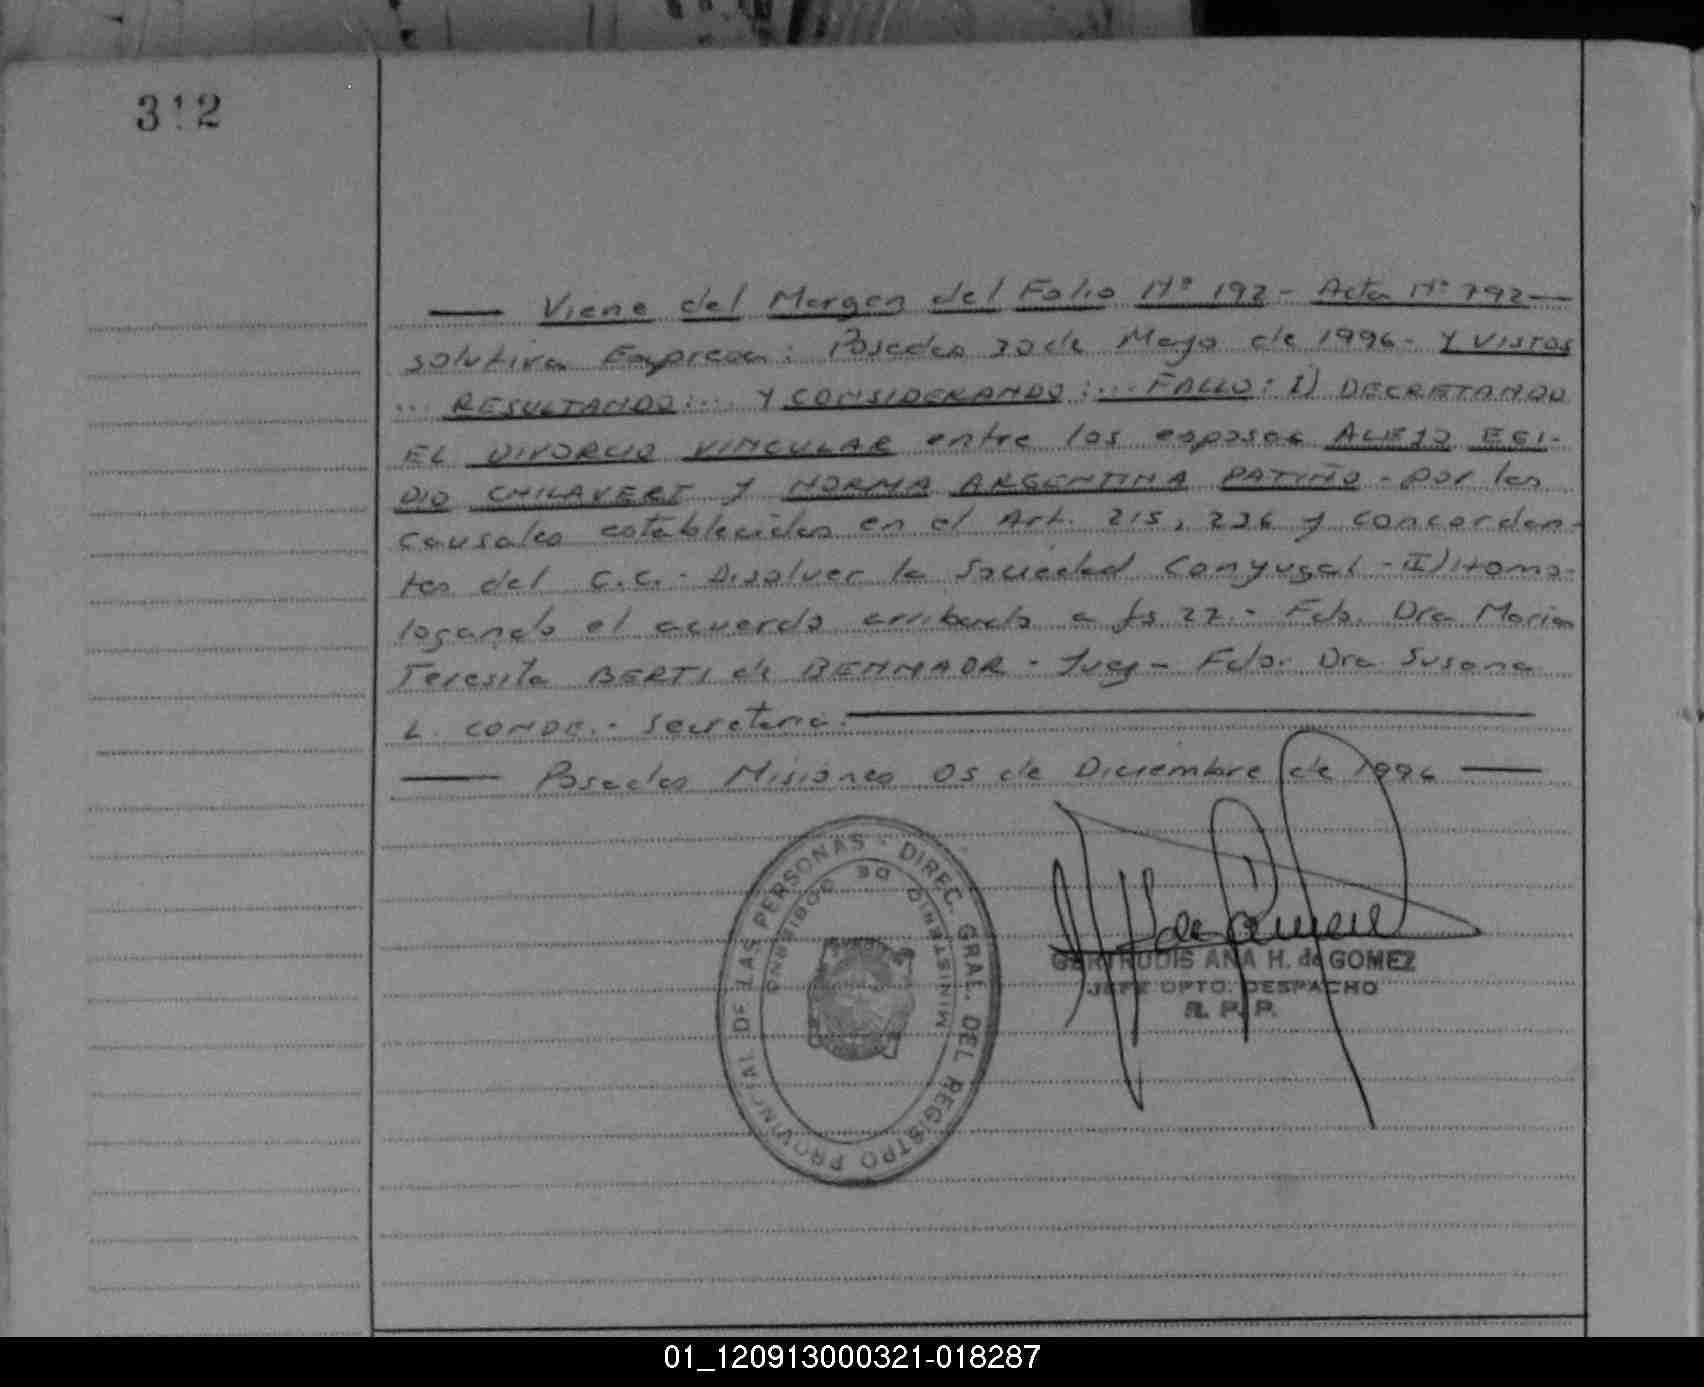 312
Viene del Margen del Folio Nº 192 - Acta Nº 792
solutiva Expresa: Posadas 30 de Mayo de 1996 - Y VISTOS
... RESULTANDO:... Y CONSIDERANDO:... FALLO: I) DECRETANDO
EL DIVORCIO VINCULAR entre los esposos ALEJO EGI-
DIO CHILAVERT y NORMA ARGENTINA PATIÑO - por las
causales establecidas en el Art. 215, 236 y concordan-
tes del C.C. - Disolver la Sociedad Conyugal - II) Homo-
logando el acuerdo arribado a fs 22. - Fdo. Dra Maria
Teresita BERTI de BENMAOR - Juez - Fdo. Dra. Susana
L. CONDE. - Secretaria.
Posadas Misiones 05 de Diciembre de 1996
DIREC. GRAL. DEL REGISTRO PROVINCIAL DE LAS PERSONAS -
MINISTERIO DE GOBIERNO
GERTRUDIS ANA H. de GOMEZ
JEFE DPTO. DESPACHO
R. P. P.
01_120913000321-018287